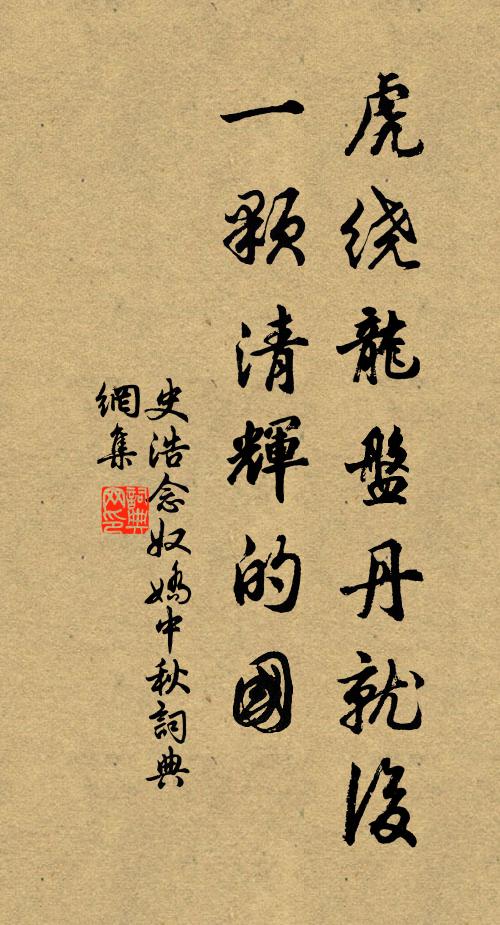 虎绕龍盤丹就後
一顆清輝的國
史浩念奴嬌中秋詞典
網集
詞典
网印